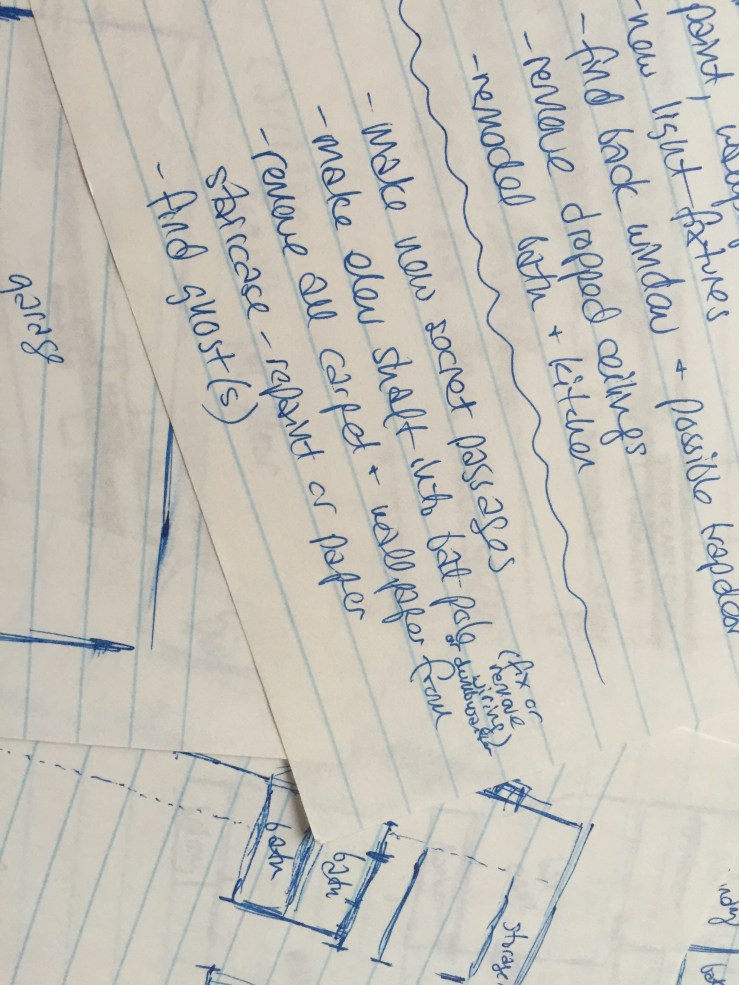 paint,
- new light fixtures
- find back window + possible trapdoor
- remove dropped ceilings
- remodel bath + kitchen
- make new secret passages
- make elev shaft into bat-pole or dumbwaiter
(fix or
remove
wiring)
- remove all carpet + wallpaper from
staircase - repaint or paper
- find ghost(s)
garage
bath
storage